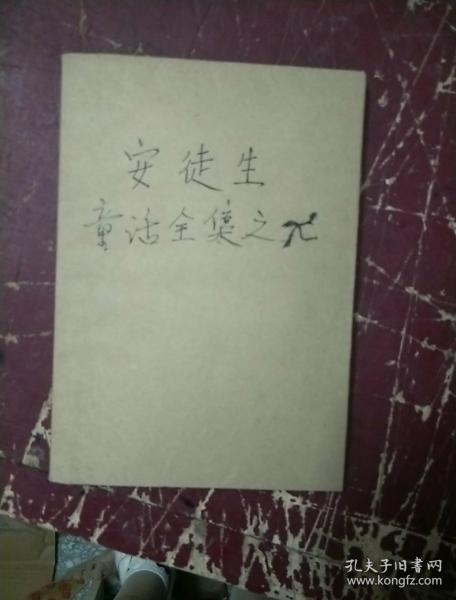 安徒生
童话全集之
孔夫子旧书网
www.kongfz.com